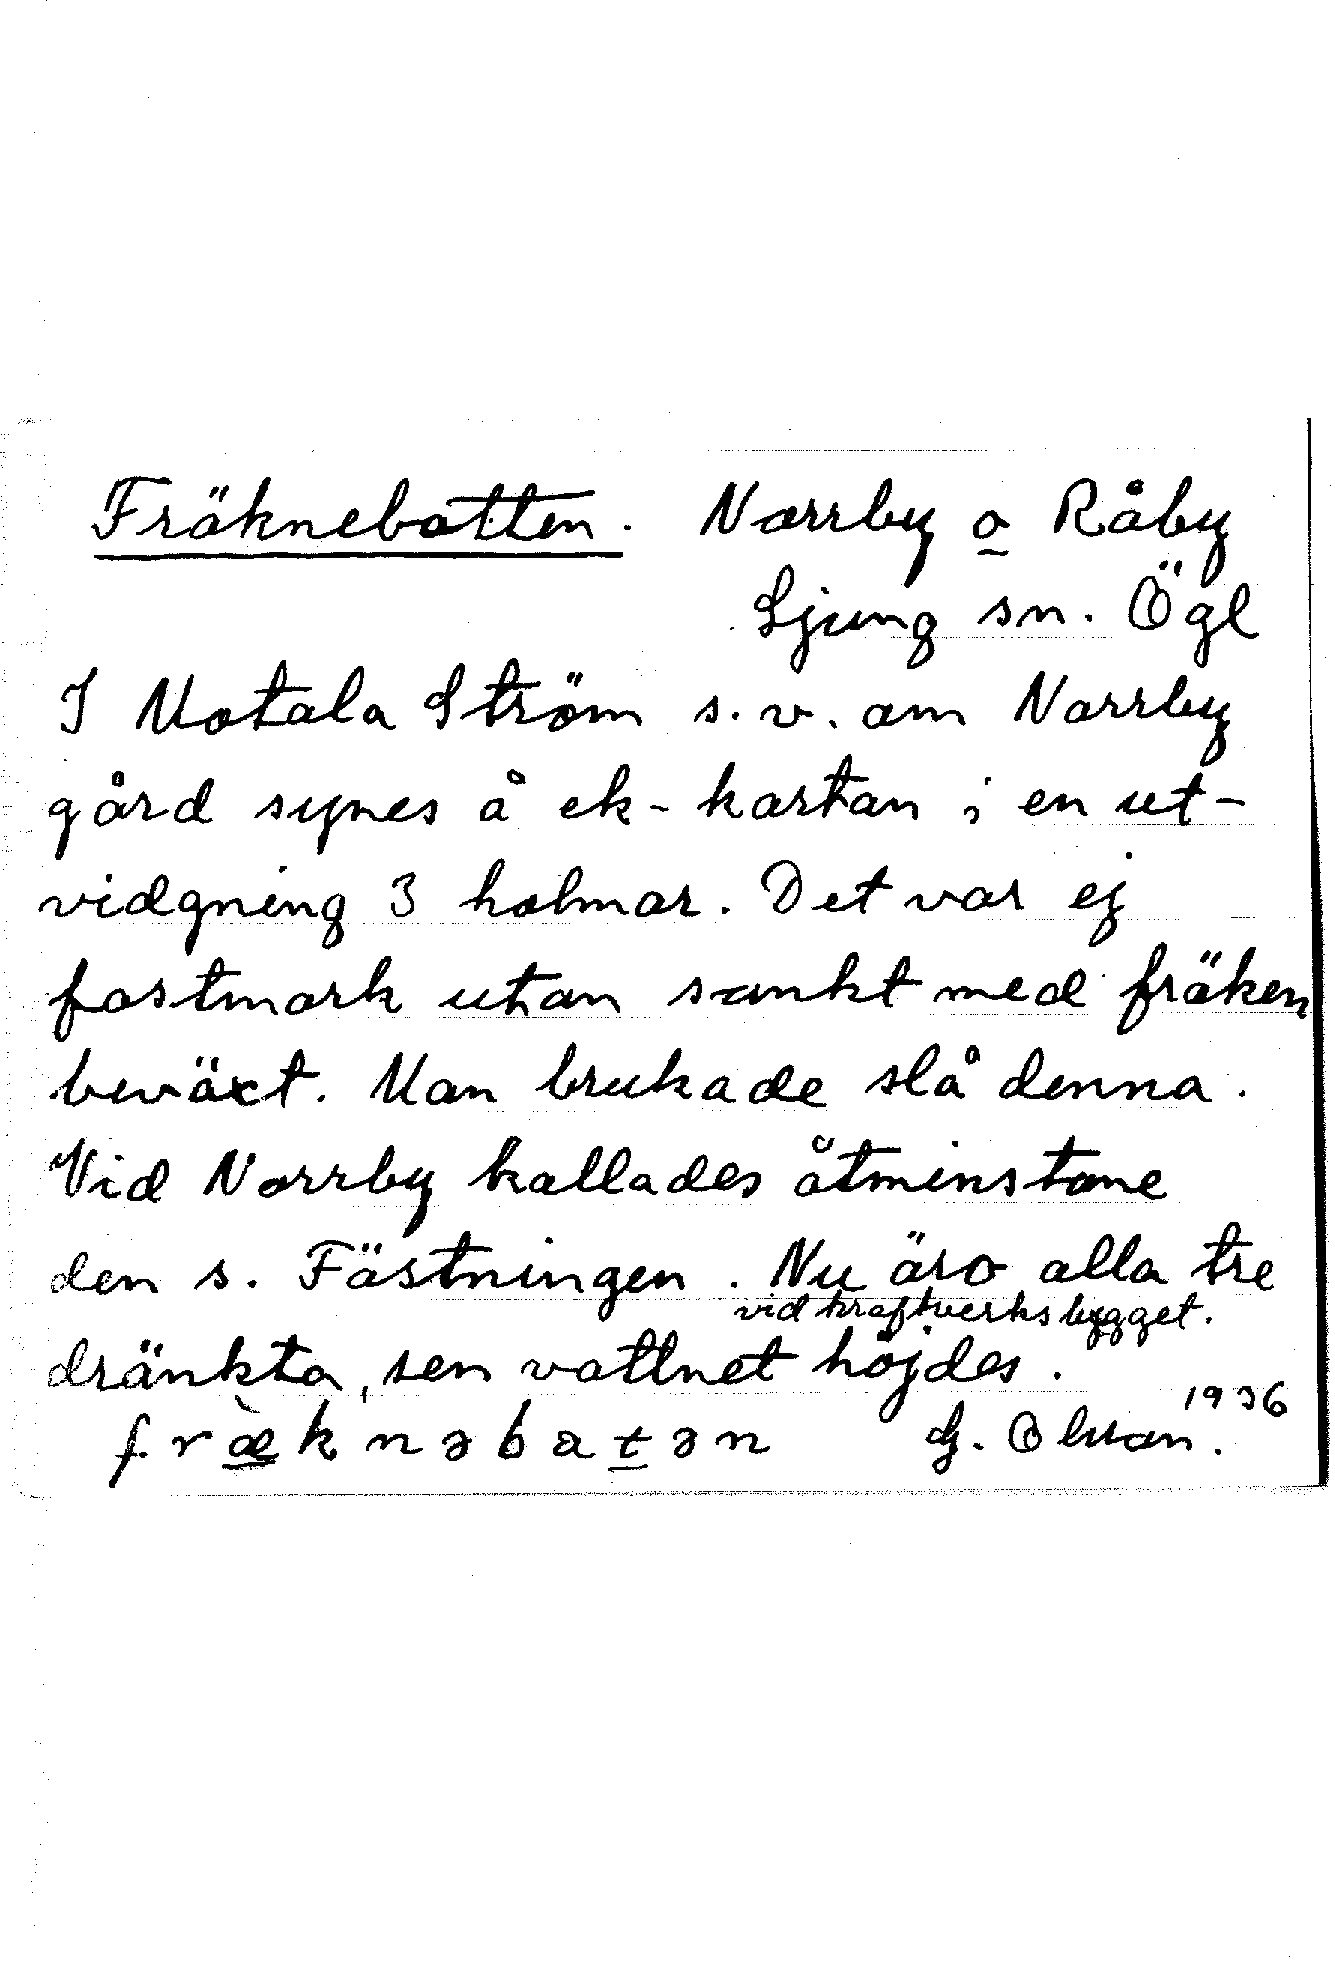 Fräknebotten. Norrby o Råby
Ljung sn. Ögl
I Motala Ström s.v. om Norrby
gård synes å ek-kartan i en ut-
vidgning 3 holmar. Det var ej
fastmark utan sankt med fräken
beväxt. Man brukade slå denna.
Vid Norrby kallades åtminstone
den s. Fästningen. Nu äro alla tre
vid kraftverksbygget.
dränkta, sen vattnet höjdes.
1936
fræ̀knəbatən G. Olson.